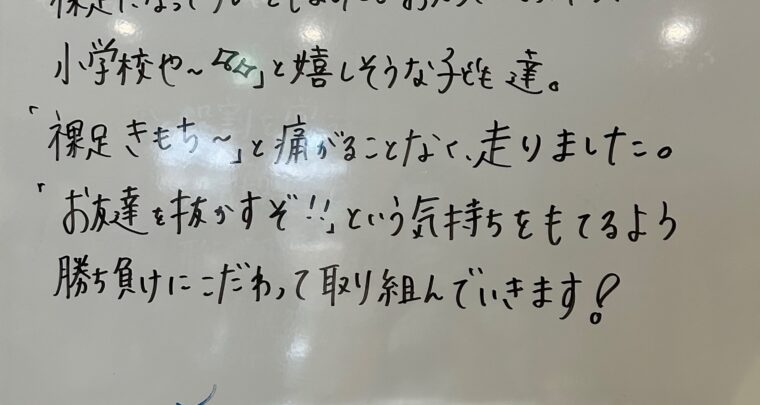 小学校や〜☆☆」と嬉しそうな子ども達。
「裸足きもち〜」と痛がることなく、走りました。
「お友達を抜かすぞ!!」という気持ちをもてるよう
勝ち負けにこだわって取り組んでいきます!